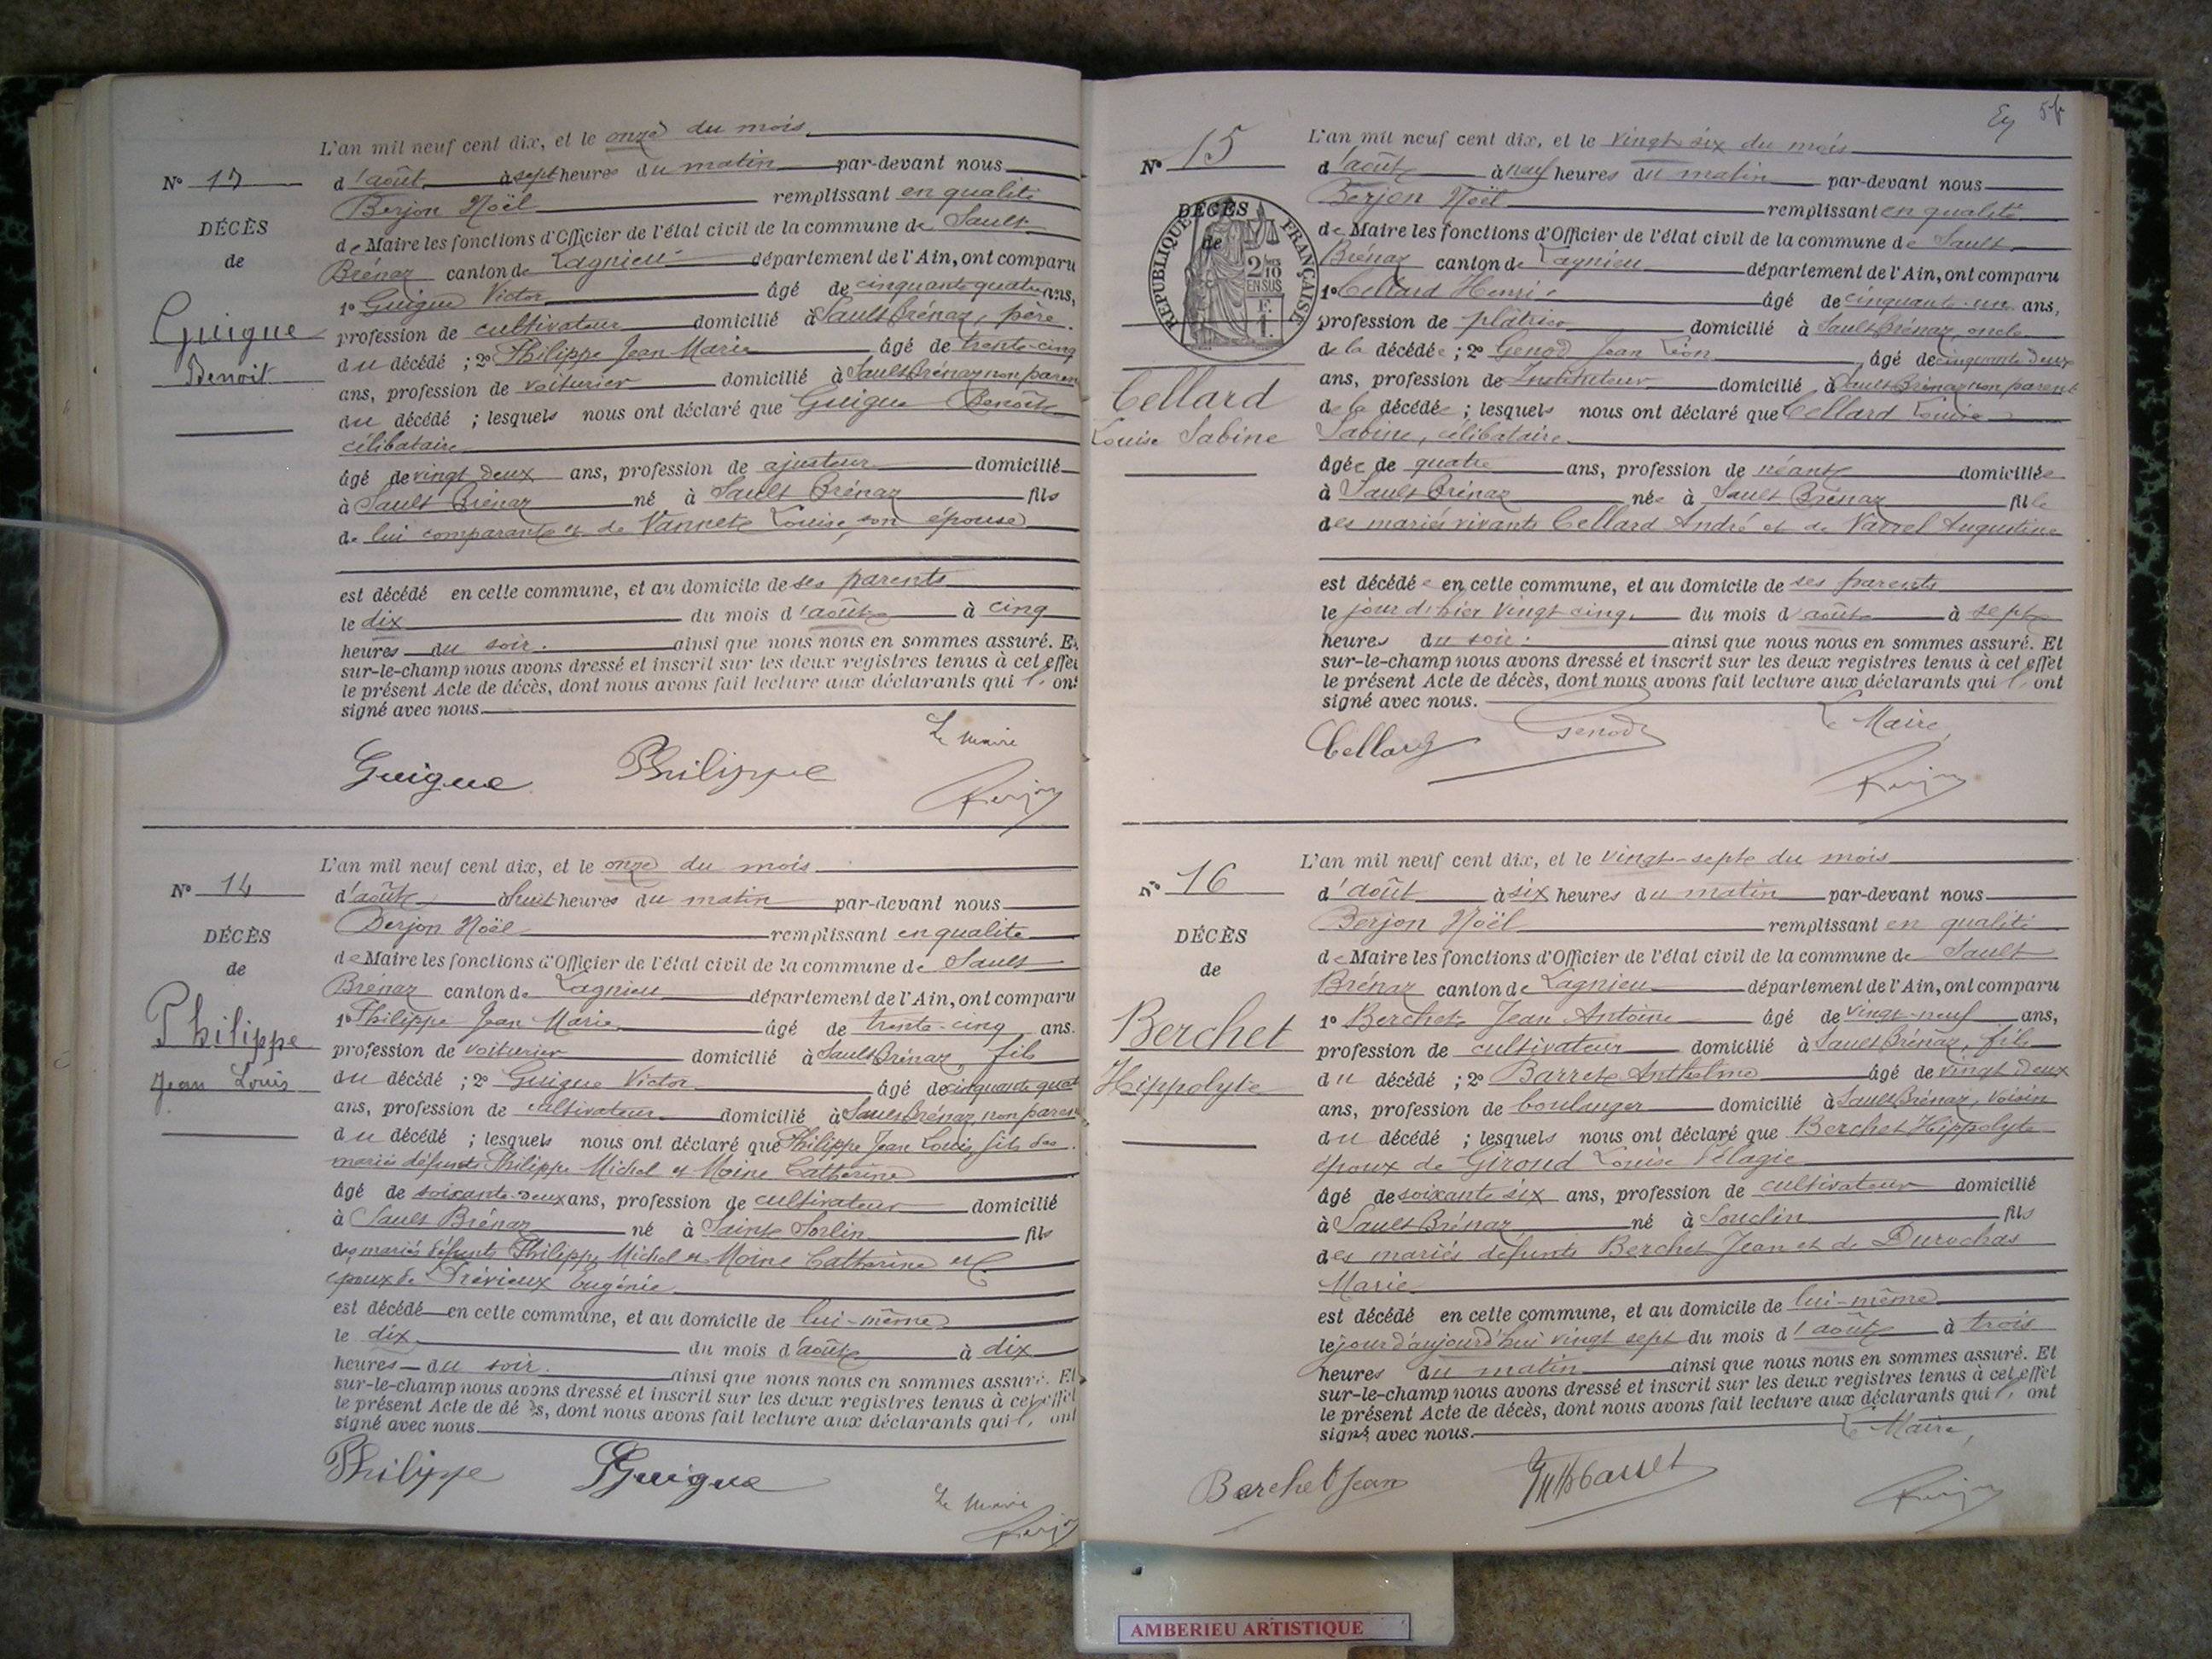 L'an mil neuf cent dix, et le onze du mois
N° 13
d'août à sept heures du matin par-devant nous
Berjon Noël remplissant en qualité
DÉCÈS
de Maire les fonctions d'Officier de l'état civil de la commune de Sault
de
Brénaz canton de Lagnieu département de l'Ain, ont comparu
1° Guigue Victor âgé de cinquante quatre ans,
Guigue
profession de cultivateur domicilié à Sault Brénaz, père
Benoit
du décédé ; 2° Philippe Jean Marie âgé de trente-cinq
ans, profession de voiturier domicilié à Sault Brénaz non paren
du décédé ; lesquels nous ont déclaré que Guigue Benoît
célibataire
âgé de vingt deux ans, profession de ajusteur domicilié
à Sault Brénaz né à Sault Brénaz fils
de lui comparant et de Vannet Louise, son épouse
est décédé en cette commune, et au domicile de ses parents
le dix du mois d'août à cinq
heures du soir. ainsi que nous nous en sommes assuré. Et
sur-le-champ nous avons dressé et inscrit sur les deux registres tenus à cet effet
le présent Acte de décès, dont nous avons fait lecture aux déclarants qui l' ont
signé avec nous.
Le Maire
Guigue Philippe Berjon
L'an mil neuf cent dix, et le onze du mois
N° 14
d'août à huit heures du matin par-devant nous
Berjon Noël remplissant en qualité
DÉCÈS
de Maire les fonctions d'Officier de l'état civil de la commune de Sault
de
Brénaz canton de Lagnieu département de l'Ain, ont comparu
1° Philippe Jean Marie âgé de trente-cinq ans.
Philippe
profession de voiturier domicilié à Sault Brénaz, fils
Jean Louis
du décédé ; 2° Guigue Victor âgé de cinquante quat
ans, profession de cultivateur domicilié à Sault Brénaz, non paren
du décédé ; lesquels nous ont déclaré que Philippe Jean Louis, fils des
mariés défunts Philippe Michel et Moine Catherine
âgé de soixante-deux ans, profession de cultivateur domicilié
à Sault Brénaz né à Saint Sorlin fils
des mariés défunts Philippe Michel et Moine Catherine et
époux de Prévieux Eugénie
est décédé en cette commune, et au domicile de lui-même
le dix du mois d'août à dix
heures du soir. ainsi que nous nous en sommes assuré. Et
sur-le-champ nous avons dressé et inscrit sur les deux registres tenus à cet effet
le présent Acte de dé s, dont nous avons fait lecture aux déclarants qui l' ont
signé avec nous.
Philippe Guigue
Le Maire
Berjon
L'an mil neuf cent dix, et le vingt-six du mois
N° 15
d'août à neuf heures du matin par-devant nous
Berjon Noël remplissant en qualité
DÉCÈS
de Maire les fonctions d'Officier de l'état civil de la commune de Sault
de
RÉPUBLIQUE FRANÇAISE
2/10 EN SUS
Brénaz canton de Lagnieu département de l'Ain, ont comparu
1° Cellard Henri âgé de cinquante-un ans,
profession de plâtrier domicilié à Sault Brénaz, oncle
de la décédée ; 2° Genod Jean Léon, âgé de cinquante deux
ans, profession de Instituteur domicilié à Sault Brénaz non parent
Cellard
de la décédée ; lesquels nous ont déclaré que Cellard Louise
Louise Sabine
Sabine, célibataire
âgée de quatre ans, profession de néant domiciliée
à Sault Brénaz née à Sault Brénaz fille
des mariés vivants Cellard André et de Varrel Augustine
est décédée en cette commune, et au domicile de ses parents
le jour d'hier vingt cinq du mois d'août à sept
heures du soir. ainsi que nous nous en sommes assuré. Et
sur-le-champ nous avons dressé et inscrit sur les deux registres tenus à cet effet
le présent Acte de décès, dont nous avons fait lecture aux déclarants qui l' ont
signé avec nous.
Le Maire,
Cellard Genod Berjon
L'an mil neuf cent dix, et le vingt-sept du mois
N° 16
d'août à six heures du matin par-devant nous
Berjon Noël remplissant en qualité
DÉCÈS
de Maire les fonctions d'Officier de l'état civil de la commune de Sault
de
Brénaz canton de Lagnieu département de l'Ain, ont comparu
1° Berchet Jean Antoine âgé de vingt-neuf ans,
Berchet
profession de cultivateur domicilié à Sault Brénaz, fils
Hippolyte
du décédé ; 2° Barret Anthelme âgé de vingt deux
ans, profession de boulanger domicilié à Sault Brénaz, voisin
du décédé ; lesquels nous ont déclaré que Berchet Hippolyte
époux de Giroud Louise Pélagie
âgé de soixante six ans, profession de cultivateur domicilié
à Sault Brénaz né à Souclin fils
des mariés défunts Berchet Jean et de Durochas
Marie
est décédé en cette commune, et au domicile de lui-même
le jour d'aujourd'hui vingt sept du mois d'août à trois
heures du matin ainsi que nous nous en sommes assuré. Et
sur-le-champ nous avons dressé et inscrit sur les deux registres tenus à cet effet
le présent Acte de décès, dont nous avons fait lecture aux déclarants qui l' ont
signé avec nous.
Le Maire,
Berchet Jean Berjon
AMBERIEU ARTISTIQUE